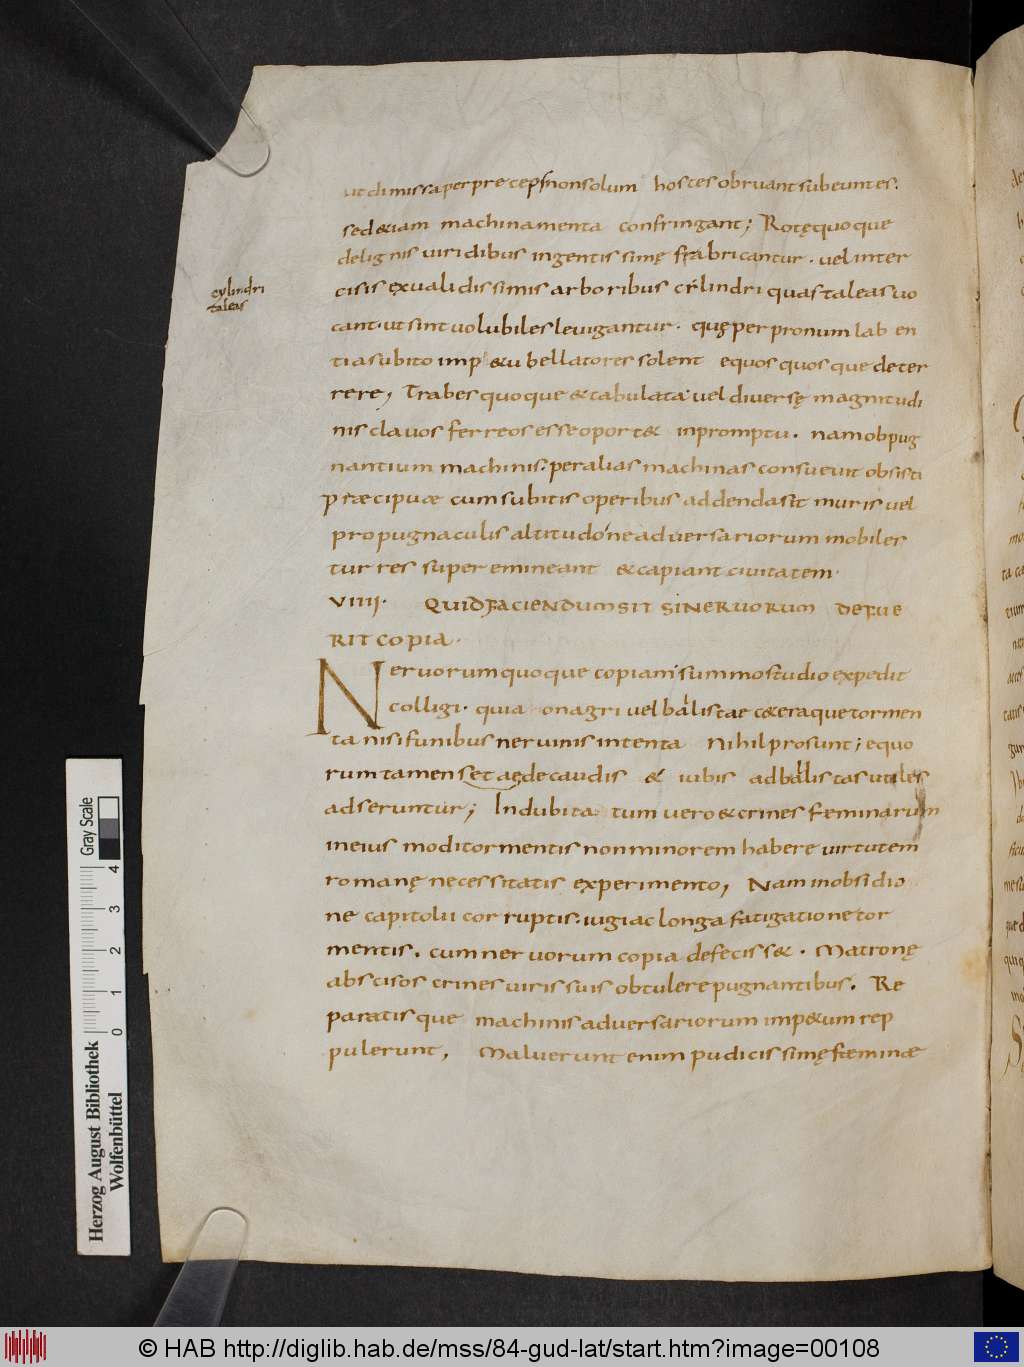 ut dimissa per preceps non solum hostes obruant subeuntes.
sed &iam machinamenta confringant; Rotę quoque
de lignis viridibus ingentissimę fabricantur. vel inter
cylindri
taleas
cisis ex ualidissimis arboribus cylindri quas taleas uo
cant. ut sint uolubiles leuigantur. quę per pronum laben
tia subito imp&u bellatores solent equos quosque deter
rere, Trabes quoque & tabulata vel diversę magnitudi
nis clavos ferreos esse oport& in promptu. nam obpug
nantium machinis. per alias machinas consuevit obsisti
præcipuæ cum subitis operibus addenda sit muris vel
propugnaculis altitudo ne adversariorum mobiles
turres super emineant & capiant civitatem.
VIIII. QUID FACIENDUM SIT SI NERVORUM DEFUE
RIT COPIA.
Nervorum quoque copiam summo studio expedit
colligi. quia onagri vel balistae c&eraque tormen
ta nisi funibus nervinis intenta Nihil prosunt; equo
rum tamen setae de caudis & iubis ad balistas utiles
adseruntur; Indubitatum vero & crines feminarum
in eius modi tormentis non minorem habere virtutem
romanę necessitatis experimento, Nam in obsidio
ne capitolii corruptis. iugi ac longa fatigatione tor
mentis. cum nervorum copia defeciss&. Matronę
abscisos crines viris suis obtulere pugnantibus. Re
paratisque machinis adversariorum imp&um rep
pulerunt, Maluerunt enim pudicissimę fæminæ
Gray Scale
0 1 2 3 4
Herzog August Bibliothek
Wolfenbüttel
© HAB http://diglib.hab.de/mss/84-gud-lat/start.htm?image=00108